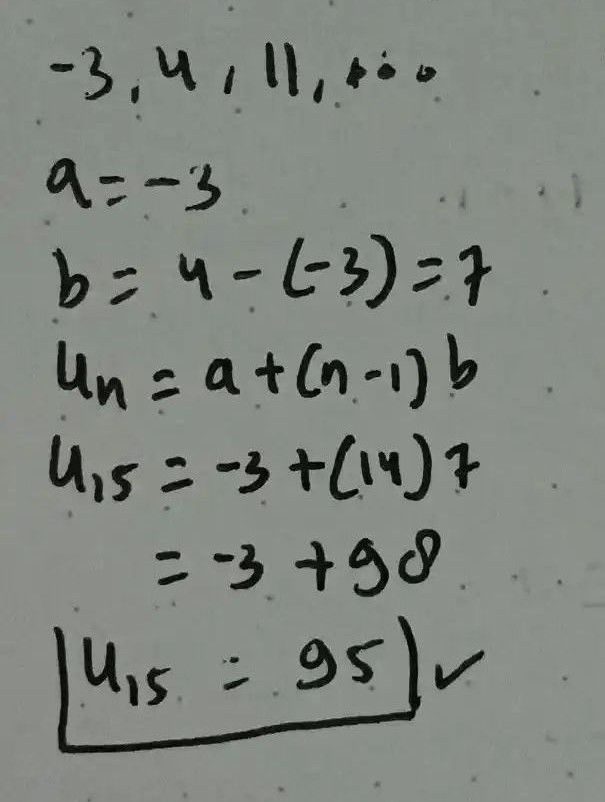 -3, 4, 11, ...
a = -3
b = 4 - (-3) = 7
Un = a + (n-1) b
U15 = -3 + (14) 7
= -3 + 98
U15 = 95 ✓